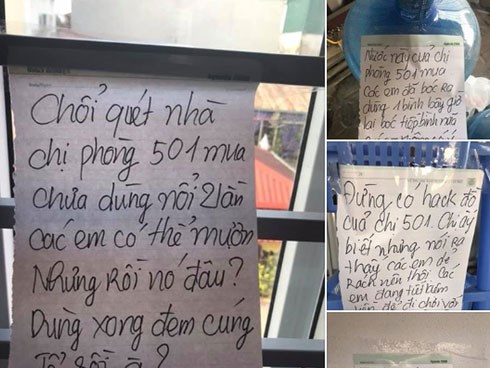 Chổi quét nhà
chị phòng 501 mua
chưa dùng nổi 2 lần
các em có thể mượn
Nhưng Rồi nó đâu?
Dùng xong đem cúng
Tổ rồi à?
Nước này của chị
phòng 501 mua
các em đã bóc ra
dùng 1 bình bây giờ
lại bóc tiếp bình nữa
Đừng có hack đồ
của chị 501. Chị ấy
biết nhưng nói ra
thấy các em dê
Rách nên thôi các
em đang túi
để đi chơi với